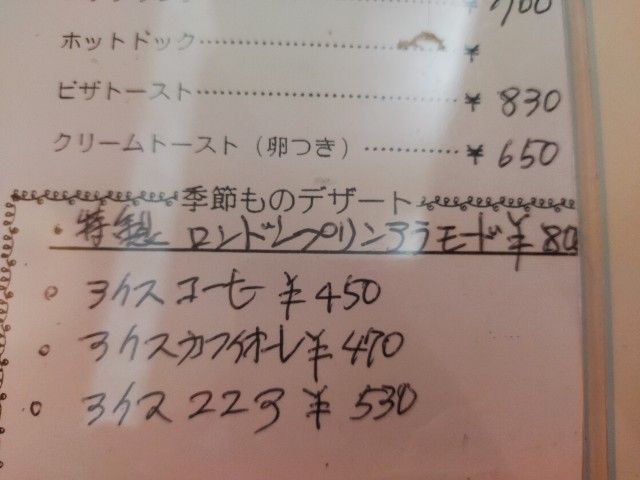 ¥700
ホットドック ¥
ピザトースト ¥ 830
クリームトースト（卵つき） ¥ 650
季節ものデザート
・特製 ロンドレプリンアラモード ¥ 80
○ アイスコーヒー ¥ 450
○ アイスカフェオーレ ¥ 470
○ アイスココア ¥ 530